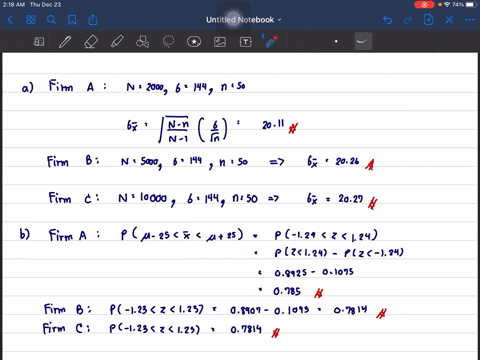 2:18 AM Thu Dec 23
74%
Untitled Notebook
a) Firm A : N = 2000, σ = 144, n = 50
σx̄ = √(N-n / N-1) (σ / √n) = 20.11
Firm B : N = 5000, σ = 144, n = 50 => σx̄ = 20.26
Firm C : N = 10000, σ = 144, n = 50 => σx̄ = 20.27
b) Firm A : P( μ - 25 < x̄ < μ + 25) = P( -1.24 < z < 1.24)
= P( z < 1.24) - P( z < -1.24)
= 0.8925 - 0.1075
= 0.785
Firm B : P( -1.23 < z < 1.23) = 0.8907 - 0.1093 = 0.7814
Firm C : P( -1.23 < z < 1.23) = 0.7814